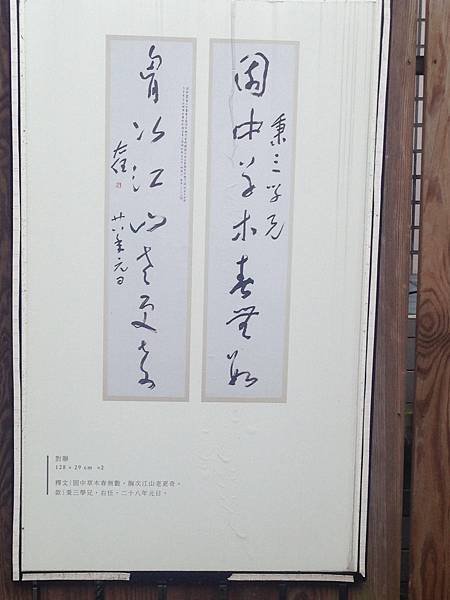 秉三學兄
園中草木春無數
胷次江山老更奇
右任
廿八年元日
對聯
128 × 29 cm ×2
釋文|園中草木春無數,胸次江山老更奇。
款|秉三學兄,右任,二十八年元日。